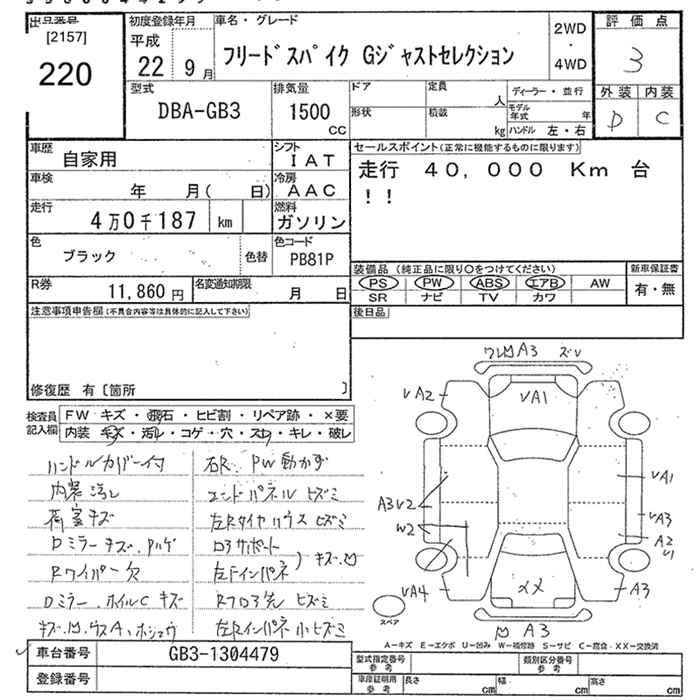 出品番号
[2157]
220
初度登録年月
平成
22 9月
車名・グレード
フリードスパイク Gジャストセレクション
2WD
・
4WD
評価点
3
外装 内装
D C
型式
DBA-GB3
排気量
1500
CC
ドア
形状
定員
人
積載
kg
ディーラー・並行
モデル年式 年
ハンドル 左・右
車歴
自家用
シフト
IAT
車検
年 月( 日)
冷房
AAC
走行
4万0千187 km
燃料
ガソリン
色
ブラック
色替
色コード
PB81P
R券
11,860 円
名変通知期限
月 日
セールスポイント(正常に機能するものに限ります)
走行 40,000 Km 台
!!
装備品 (純正品に限り○をつけてください)
PS PW ABS エアB AW
SR ナビ TV カワ
新車保証書
有・無
後日品
注意事項申告欄(不具合内容等は具体的に記入して下さい)
修復歴 有〔箇所 〕
検査員
記入欄
FW キズ・飛石・ヒビ割・リペア跡・×要
内装 キズ・汚レ・コゲ・穴・スリ・キレ・破レ
ハンドルカバー付
内装汚レ
荷室キズ
Dミラーキズ、Aハゲ
Rワイパー欠
Dミラー、ホイルC キズ
右R PW動かず
エンドパネル ヒズミ
左Rタイヤハウス ヒズミ
ロアサポート
左Fインパネ
キズ、凹
Rフロア先 ヒズミ
左Rインパネ 小ヒズミ
ワレ凹 A3 ズレ
VA2
VA1
A3V2
W2
VA4
VA1
VA3
A2
A3
XX
凹 A3
スペア
A－キズ E－エクボ U－凹み W－補修跡 S－サビ C－腐食・XX－交換済
車台番号
GB3-1304479
登録番号
型式指定番号
参考
類別区分番号
参考
車庫証明用
参考
長さ cm
幅 cm
高さ cm